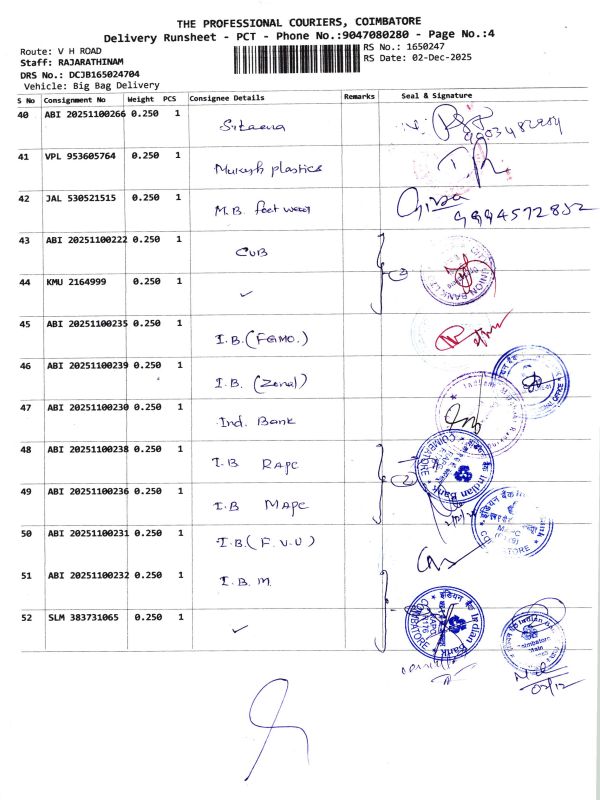 THE PROFESSIONAL COURIERS, COIMBATORE
Delivery Runsheet - PCT - Phone No.:9047080280 - Page No.:4
Route: V H ROAD
RS No.: 1650247
Staff: RAJARATHINAM
RS Date: 02-Dec-2025
DRS No.: DCJB165024704
Vehicle: Big Bag Delivery
S No Consignment No Weight PCS Consignee Details Remarks Seal & Signature
40 ABI 20251100266 0.250 1
41 VPL 953605764 0.250 1 Mukesh plastics
42 JAL 530521515 0.250 1 M.B. foot wear
9994572852
43 ABI 20251100222 0.250 1 CUB
44 KMU 2164999 0.250 1 ✓
45 ABI 20251100235 0.250 1 I.B. (FGMO.)
46 ABI 20251100239 0.250 1 I.B. (Zonal)
47 ABI 20251100230 0.250 1 Ind. Bank
48 ABI 20251100238 0.250 1 I.B RAPC
49 ABI 20251100236 0.250 1 I.B MAPC
50 ABI 20251100231 0.250 1 I.B. (F.V.U)
51 ABI 20251100232 0.250 1 I.B.M.
52 SLM 383731065 0.250 1 ✓
इंडियन बैंक Indian Bank
COIMBATORE
02/12